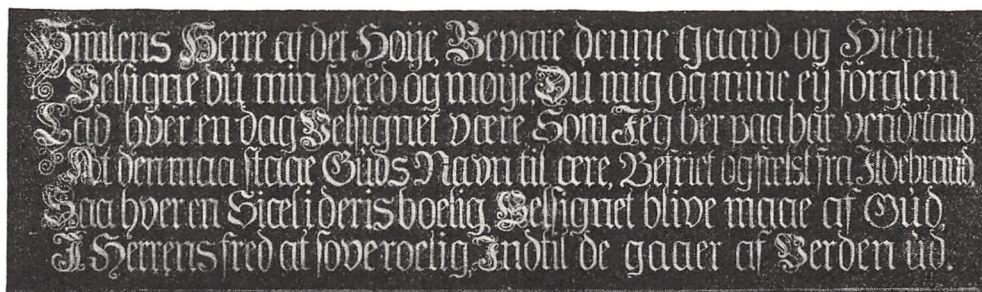 Himlens Herre af det Høije, Bevare denne gaard og Hiem,
Velsigne du min sveed og møije, Du mig og mine eij forglem,
Lad hver en dag Velsignet være Som Jeg her paa har vendet and,
At den maa staae Guds Navn til ære, Befriet og frelst fra Ildebrand,
Saa hver en Siæl i deris boelig, Velsignet blive maae af Gud,
I Herrens fred at sove roelig, Indtil de gaaer af Verden ud.